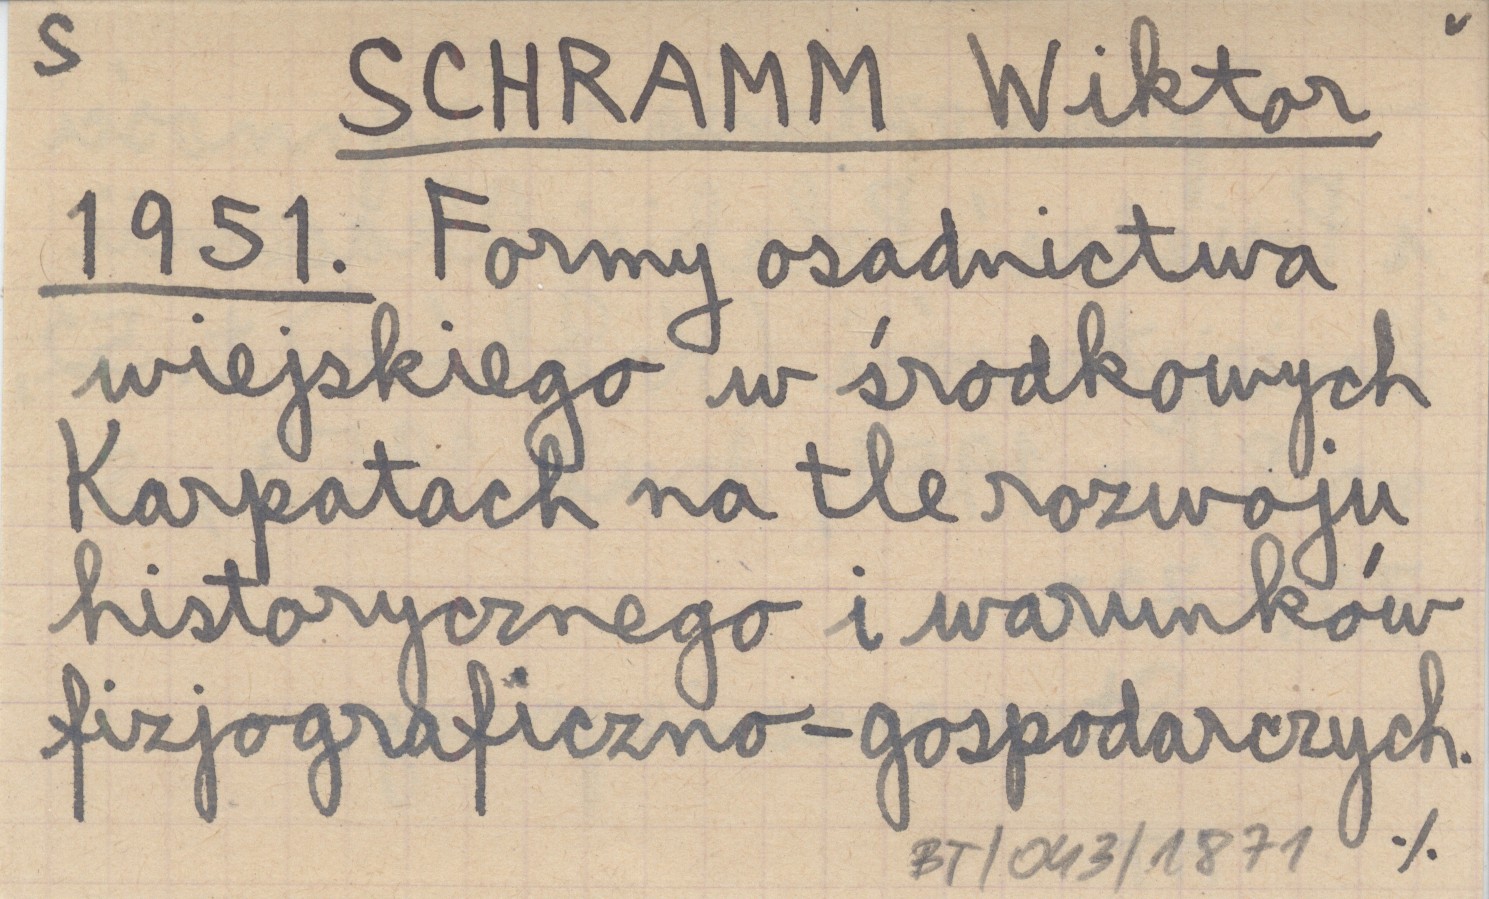 S
SCHRAMM Wiktor
1951. Formy osadnictwa
wiejskiego w środkowych
Karpatach na tle rozwoju
historycznego i warunków
fizjograficzno-gospodarczych.
BT/043/1871 ./.